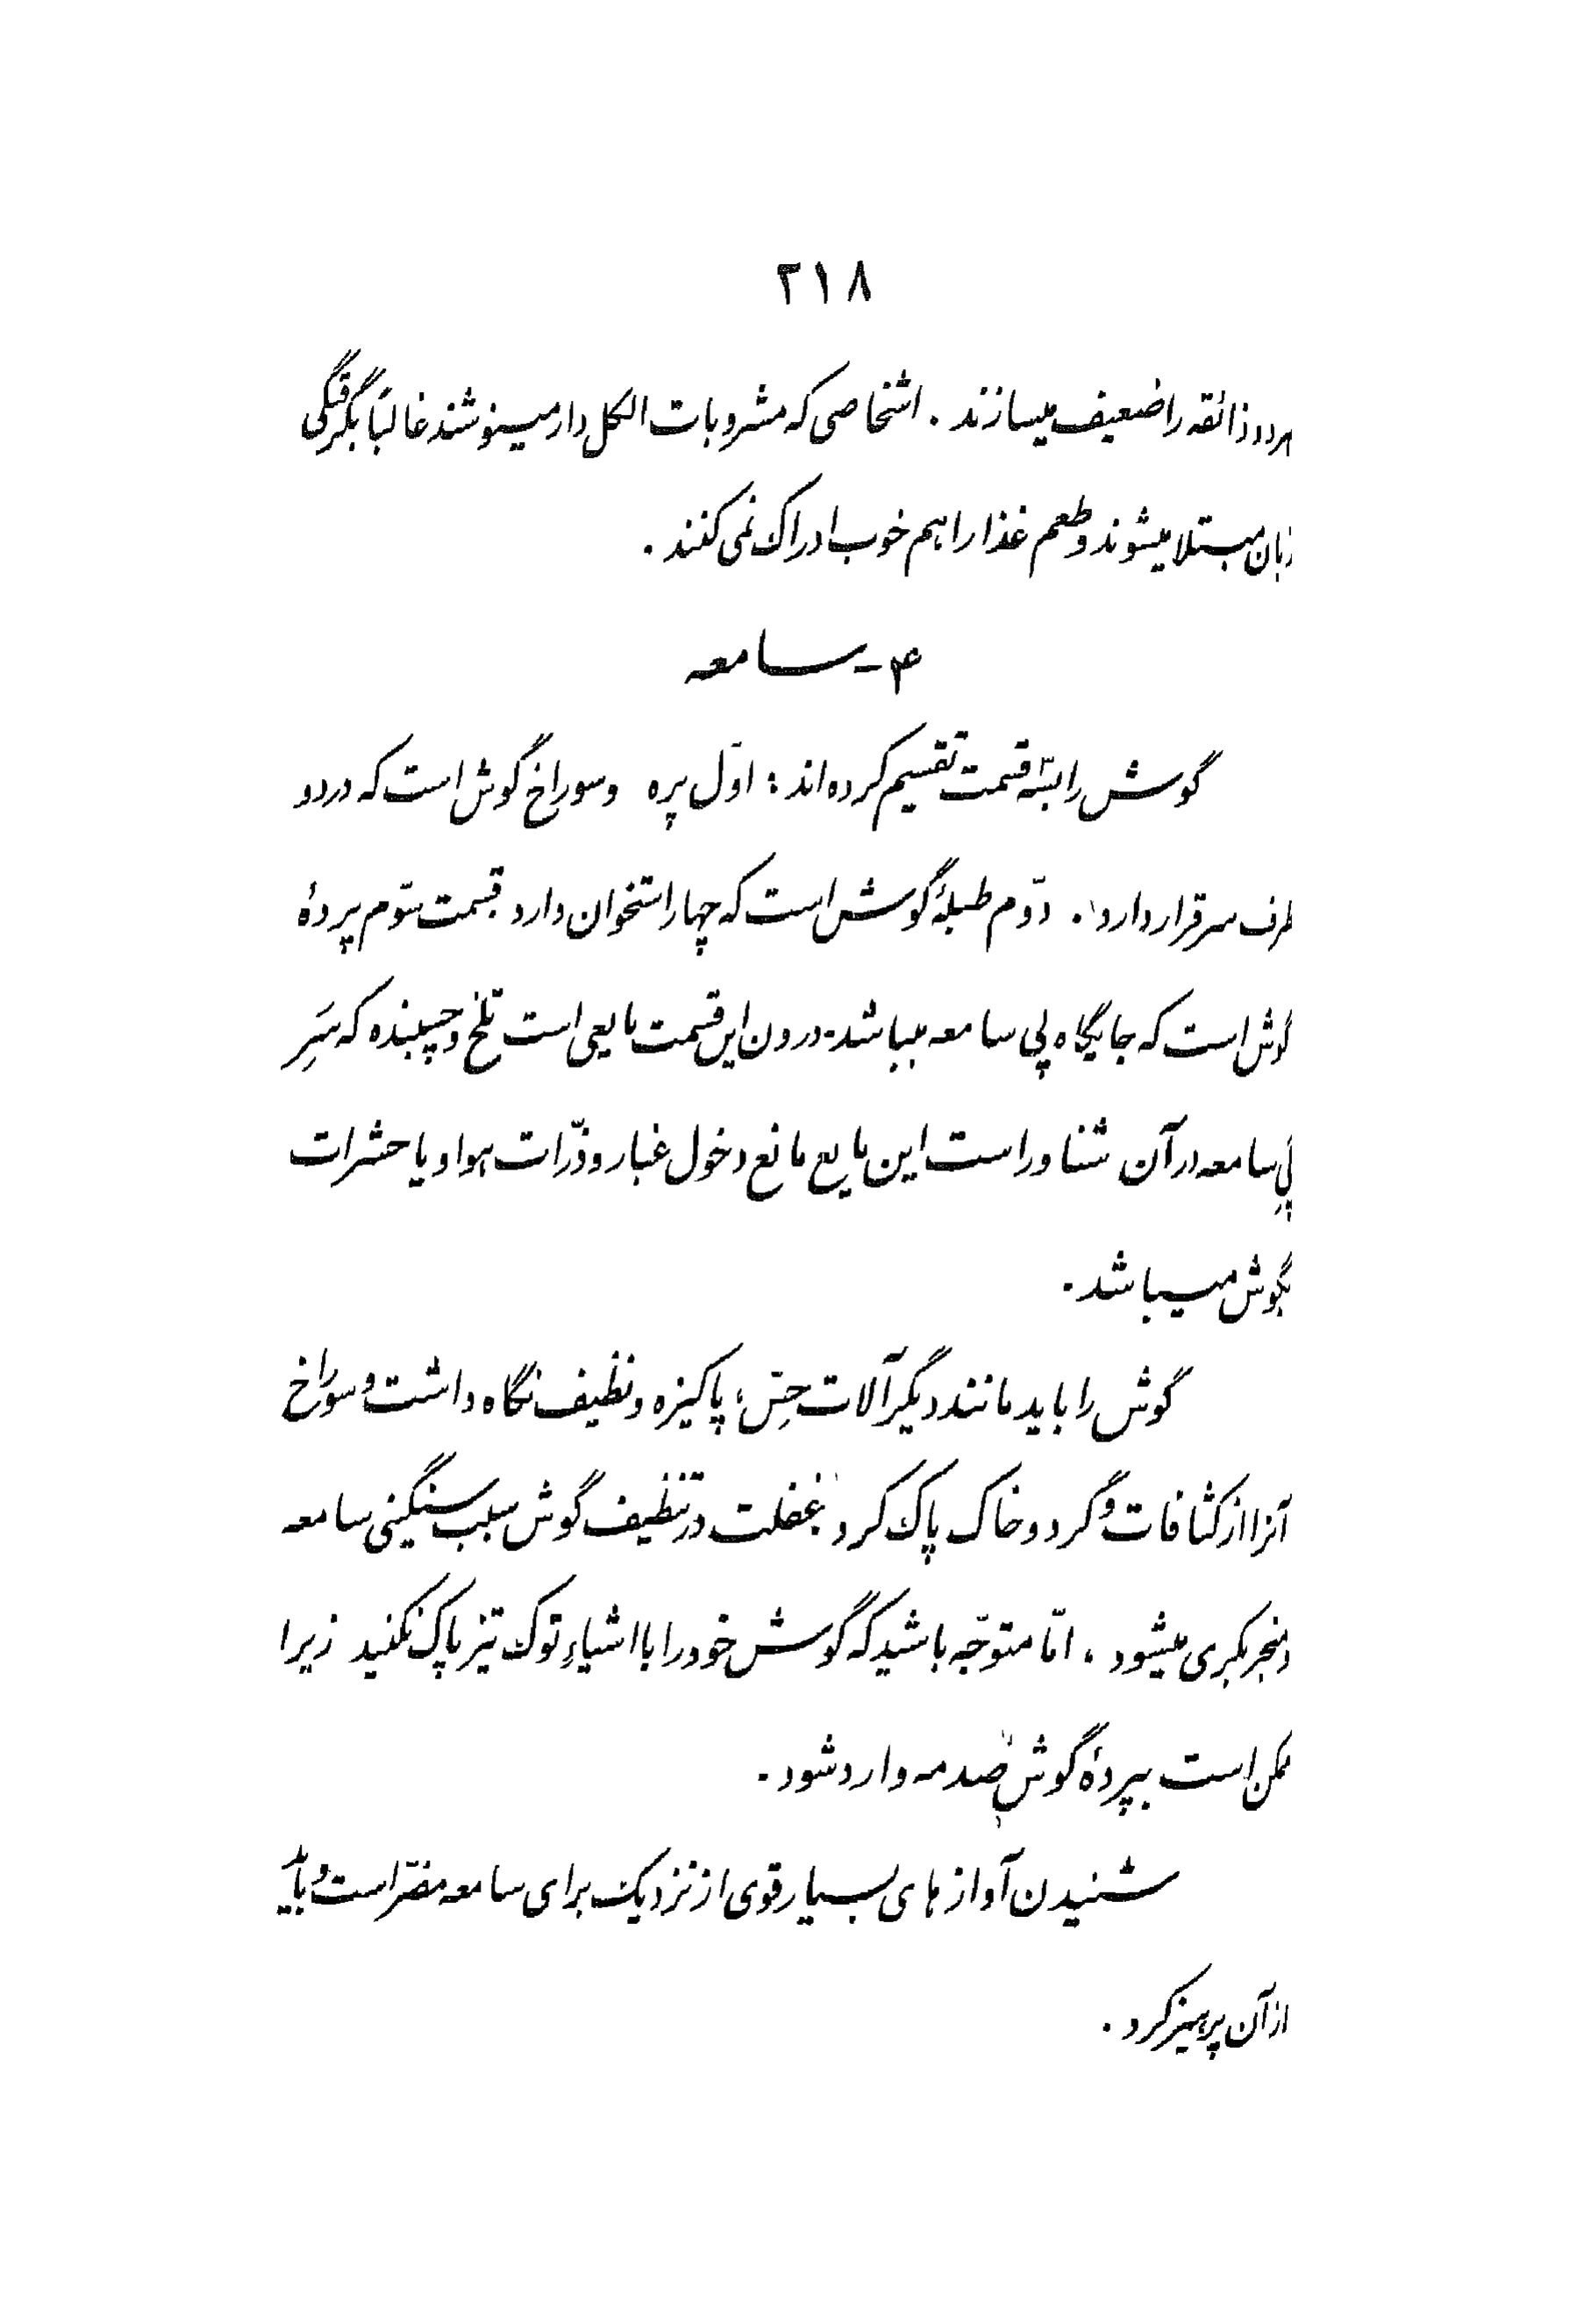 ۲۱۸
هردو ذائقه را ضعیف میسازند . اشخاصی که مشروبات الکل دار مینوشند غالباً بگرفتگی
زبان مبتلا میشوند و طعم غذا را هم خوب ادراک نمی کنند .
۴ - سامعه
گوش را بسّه قسمت تقسیم کرده اند : اوّل پره و سوراخ گوش است که در دو
طرف سر قرار دارد . دوّم طبلهٔ گوش است که چهار استخوان دارد قسمت سوّم پردهٔ
گوش است که جایگاه پی سامعه میباشد - درون این قسمت مایعی است تلخ و چسبنده که سَرِ
پیِ سامعه در آن شناور است این مایع مانع دخول غبار و ذرّات هوا و یا حشرات
بگوش میباشد .
گوش را باید مانند دیگر آلات حِسّ ، پاکیزه و نظیف نگاه داشت و سوراخ
آنرا از کثافات و گرد و خاک پاک کرد غفلت در تنظیف گوش سبب سنگینی سامعه
و منجر بکری میشود ، امّا متوجّه باشید که گوش خود را با اشیاءِ نوک تیز پاک نکنید زیرا
ممکن است بپردهٔ گوش صدمه وارد شود .
شنیدن آواز های بسیار قوی از نزدیک برای سامعه مضرّ است و باید
از آن پرهیز کرد .